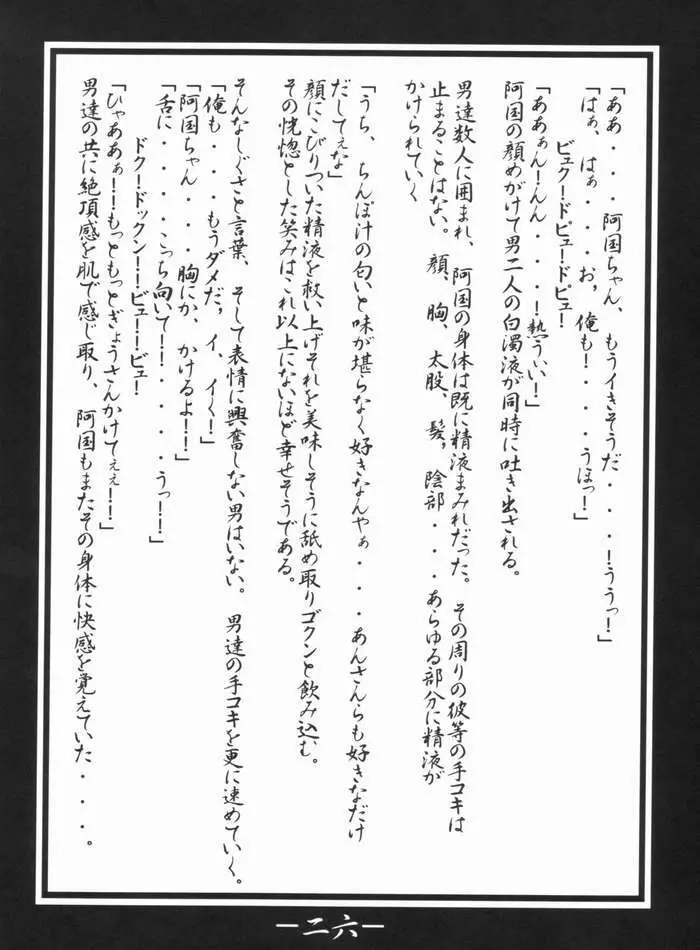 「ああ・・・阿国ちゃん、もうイきそうだ・・・！ううっ！」
「はぁ、はぁ・・・お，俺も！・・・・うほっ！」
ビュク！ドビュー！ドピュ！
「ああぁん！んん・・・・！熱ういい！」
阿国の顔めがけて男二人の白濁液が同時に吐き出される。
男達数人に囲まれ、阿国の身体は既に精液まみれだった。その周りの彼等の手コキは
止まることはない。顔，胸，太股，髪，陰部・・・・あらゆる部分に精液が
かけられていく
「うち、ちんぽ汁の匂いと味が堪らなく好きなんやぁ・・・あんさんらも好きなだけ
だしてぇな」
顔にこびりついた精液を救い上げそれを美味しそうに舐め取りゴクンと飲み込む。
その恍惚とした笑みはこれ以上にないほど幸せそうである。
そんなしぐさと言葉、そして表情に興奮しない男はいない。男達の手コキを更に速めていく。
「俺も・・・もうダメだ，イ，イく！」
「阿国ちゃん・・・・胸にか、かけるよ！！」
「舌に・・・・こっち向いて！！・・・・うっ！！」
ドクー！ドックン！！ビュー！！ビュ！
「ひゃああぁ！！もっともっとぎょうさんかけてぇぇ！！」
男達の共に絶頂感を肌で感じ取り、阿国もまたその身体に快感を覚えていた・・・・。
二六